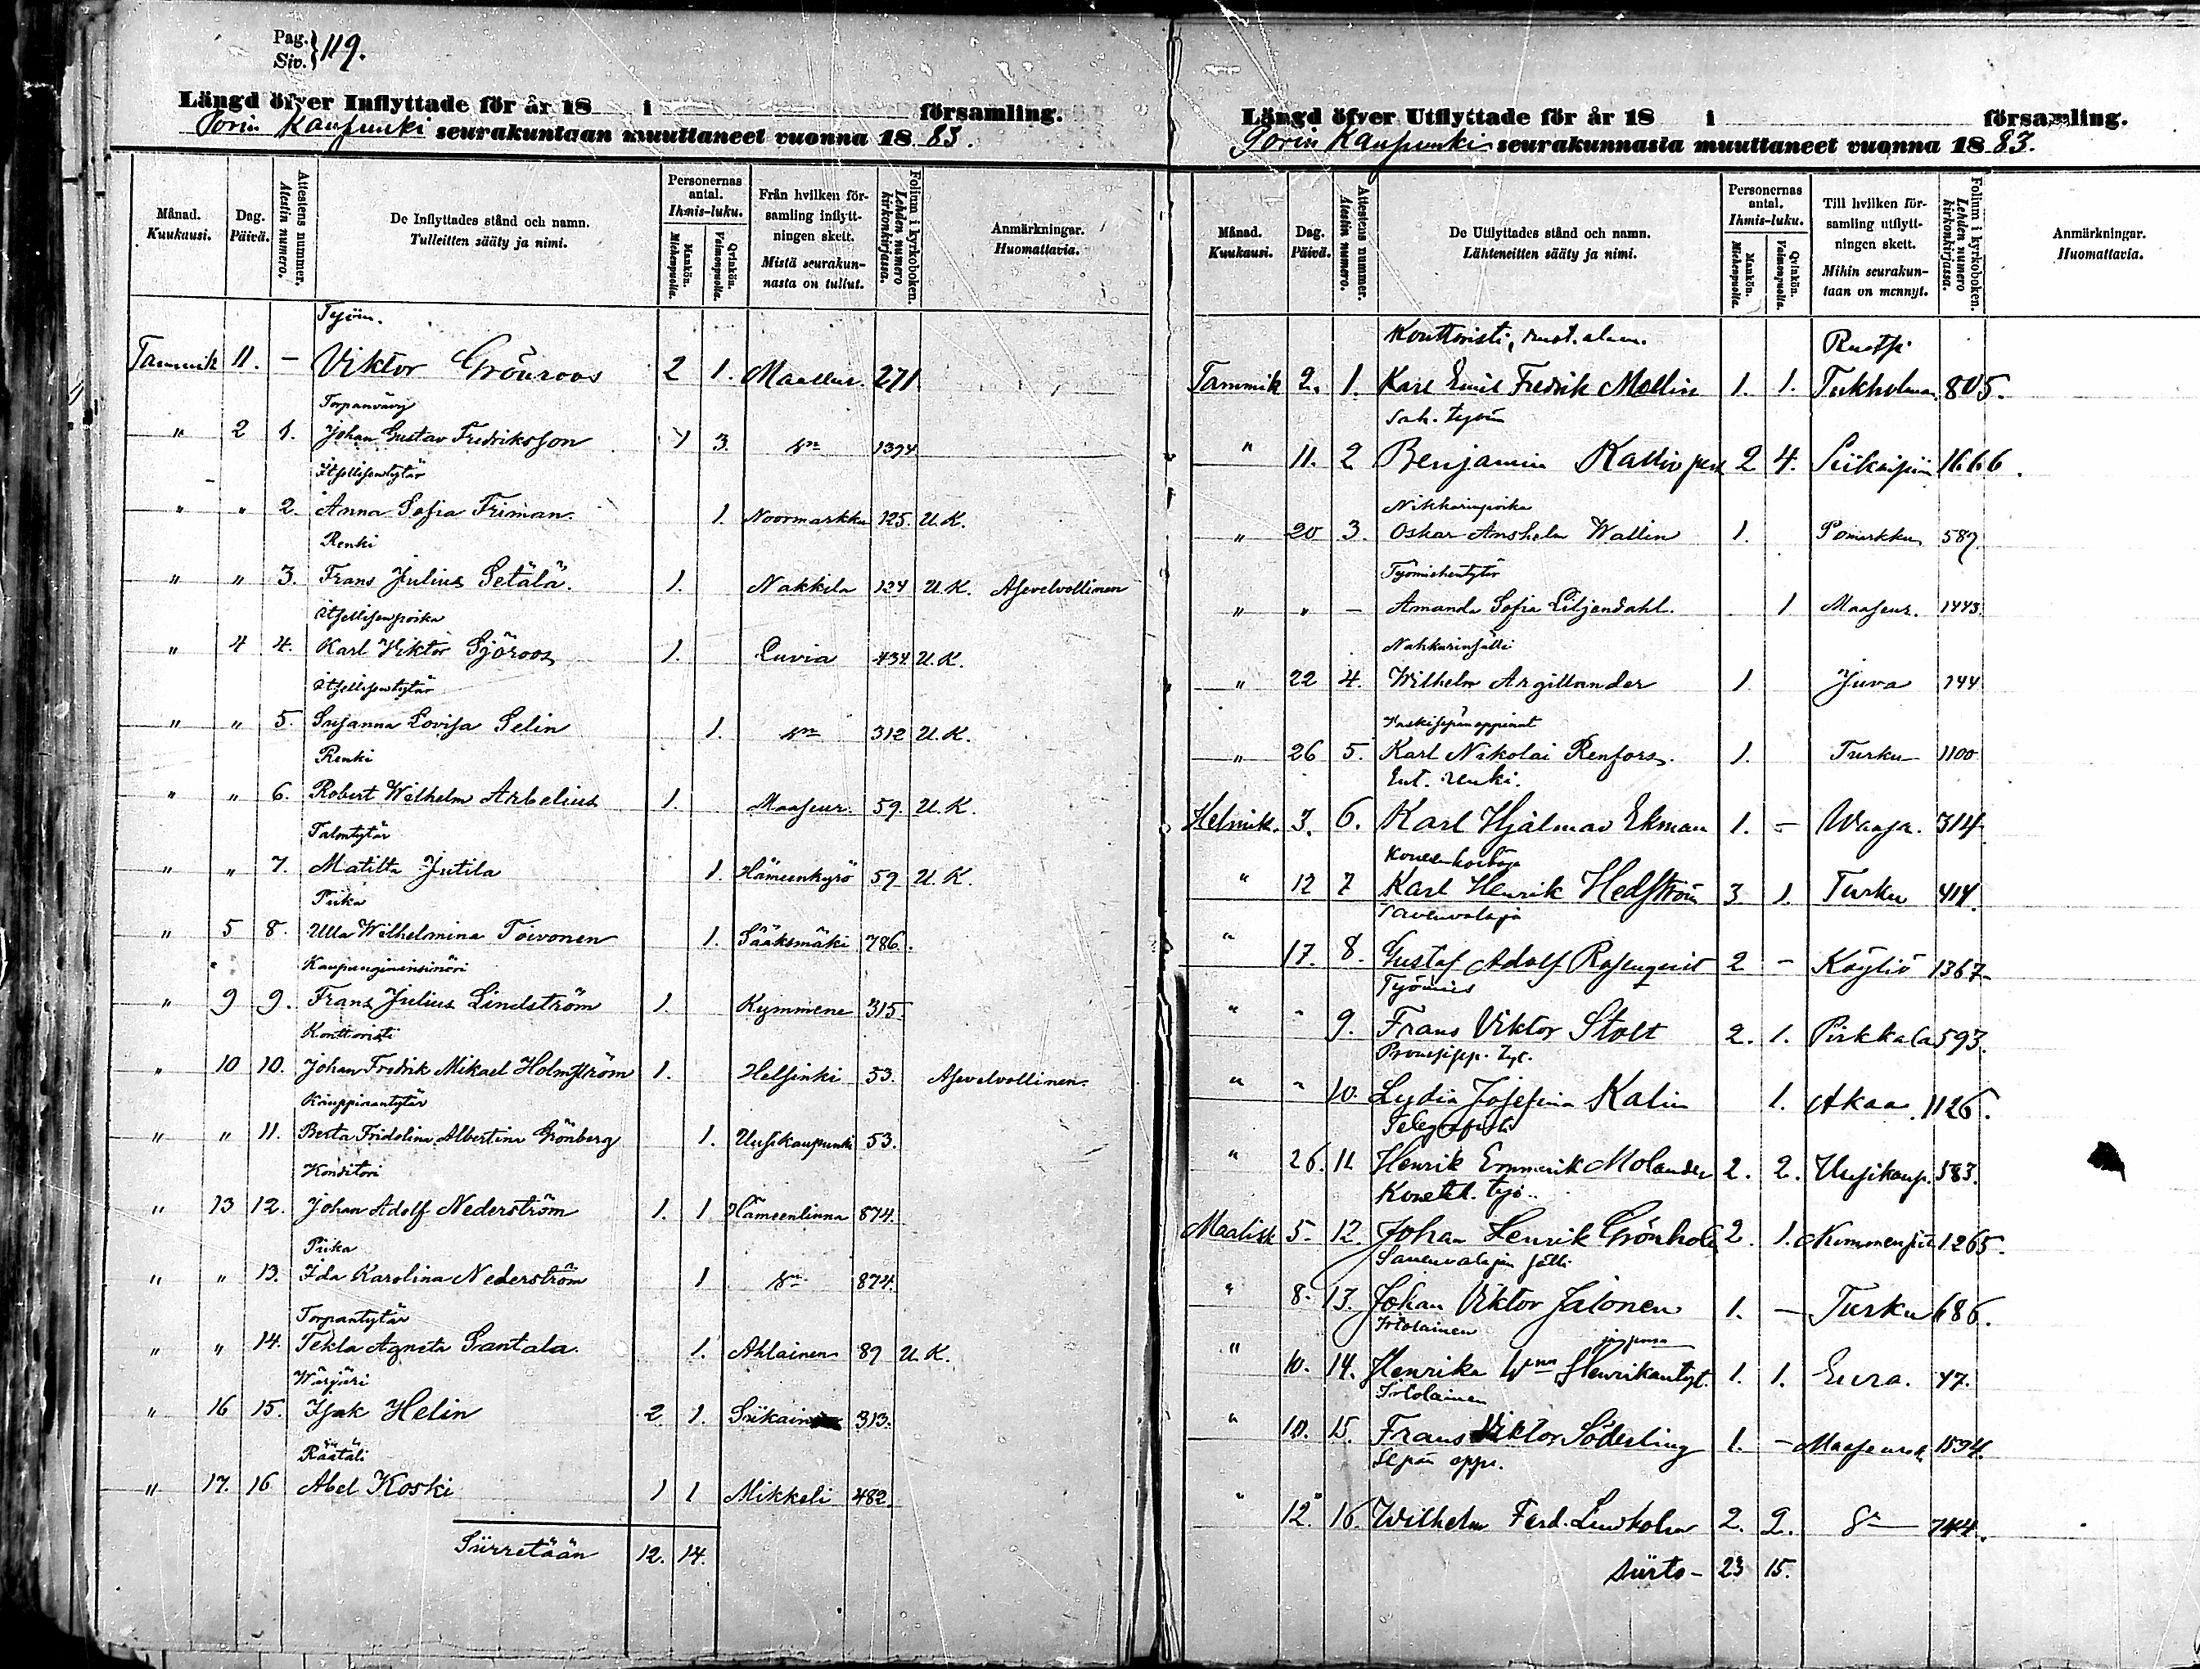 Pag. Siv. } 119.
Längd öfver Inflyttade för år 18 i församling.
Porin Kaupunki seurakuntaan muuttaneet vuonna 1883.
Månad. Kuukausi.
Dag. Päivä.
Attestens nummer. Atestin numero.
De Inflyttades stånd och namn. Tulleitten sääty ja nimi.
Personernas antal. Ihmis-luku.
Mankön. Miehenpuolia.
Qvinkön. Vaimonpuolia.
Från hvilken församling inflyttningen skett. Mistä seurakunnasta on tullut.
Folium i kyrkoboken. Lehden numero kirkonkirjassa.
Anmärkningar. Huomattavia.
Työm.
Tammik 11. — Viktor Grönroos 2 1. Maaseur. 271
Torpanvävy
" 2 1. Johan Gustav Fredriksson 1 3. 1394
Itsellisentytär
" " 2. Anna Sofia Friman. 1. Noormarkku 125. U.K.
Renki
" " 3. Frans Julius Setälä. 1. Nakkila 124 U.K. Asevelvollinen
Itsellisenpoika
" 4 4. Karl Viktor Sjöroos 1. Luvia 434 U.K.
Itsellisentytär
" " 5. Susanna Lovisa Selin 1. 312 U.K.
Renki
" " 6. Robert Wilhelm Arbelius 1. Maaseur. 59. U.K.
Talontytär
" " 7. Matilta Jutila 1. Hämeenkyrö 59 U.K.
Piika
" 5 8. Ulla Wilhelmina Toivonen 1. Sääksmäki 786.
Kaupungininsinöri
" 9 9. Frans Julius Lindström 1. Kymmene 315.
Konttoristi
" 10 10. Johan Fredrik Mikael Holmström 1. Helsinki 53. Asevelvollinen.
Kauppiaantytär
" " 11. Berta Fridolina Albertina Grönberg 1. Uusikaupunki 53.
Konditori
" 13 12. Johan Adolf Nederström 1. 1 Hämeenlinna 874.
Piika
" " 13. Ida Karolina Nederström 1 874.
Torpantytär
" " 14. Tekla Agneta Santala 1. Ahlainen 89 U.K.
Wärjäri
" 16 15. Isak Helin 2 1. 313.
Räätäli
" 17. 16 Abel Koski 1 1 Mikkeli 482.
Siirretään 12. 14.
Längd öfver Utflyttade för år 18 i församling.
Porin Kaupunki seurakunnasta muuttaneet vuonna 1883.
Månad. Kuukausi.
Dag. Päivä.
Attestens nummer. Atestin numero.
De Utflyttades stånd och namn. Lähteneitten sääty ja nimi.
Personernas antal. Ihmis-luku.
Mankön. Miehenpuolia.
Qvinkön. Vaimonpuolia.
Till hvilken församling utflyttningen skett. Mihin seurakuntaan on mennyt.
Folium i kyrkoboken. Lehden numero kirkonkirjassa.
Anmärkningar. Huomattavia.
Konttoristi, Ruotsi
Tammik 2. 1. Karl Emil Fredrik Mollin 1. 1. Tukholma 805.
Sah. työm
" 11. 2 Benjamin Kallio 2 4. 1666.
Nikkarinpoika
" 20 3. Oskar Anshelm Wallin 1. Pomarkku 589.
Työmiehentytär
" " — Amanda Sofia Liljendahl. 1 Maaseur. 1443.
Nahkurinsälli
" 22 4. Wilhelm Argillander 1 Juva 144
Vaskisepänoppinut
" 26 5. Karl Nikolai Renfors. 1. Turku 1100
Ent. renki.
Helmik. 3. 6. Karl Hjalmar Ekman 1. — Waasa. 314.
Koneenhoitaja
" 12 7 Karl Henrik Hedström 3 1. Turku 414.
Savenvalaja
" 17. 8. Gustaf Adolf Rosenqvist 2 — Köyliö 1367.
Työmies
" " 9. Frans Viktor Stolt 2. 1. Pirkkala 593.
" " 10. Lydia Josefina Kalin 1. Akaa 1126.
Telegrafisti
" 26. 11. Henrik Emmerik Molander 2. 2. Uusikaup. 583.
Konetel. työ.
Maalisk 5. 12. Johan Henrik Grönholm 2. 1. 1265.
Savenvalajan sälli
" 8. 13. Johan Viktor Jalonen 1. — Turku 686.
Irtolainen
" 10. 14. Henrika Wna Henrikantyt. 1. 1. Eura. 47.
Irtolainen
" 10. 15. Frans Viktor Söderling 1. — Maaseurak 1594.
Sepän opp.
" 12. 16. Wilhelm Ferd. Lindholm 2. 2. 744.
siirto — 23 15.